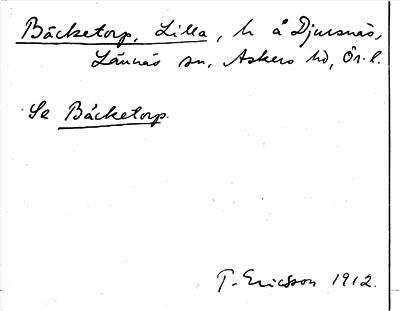 Bäcketorp, Lilla, h å Djursnäs,
Lännäs sn, Askers hd, Ör. l.
Se Bäcketorp.
T. Ericsson 1912.